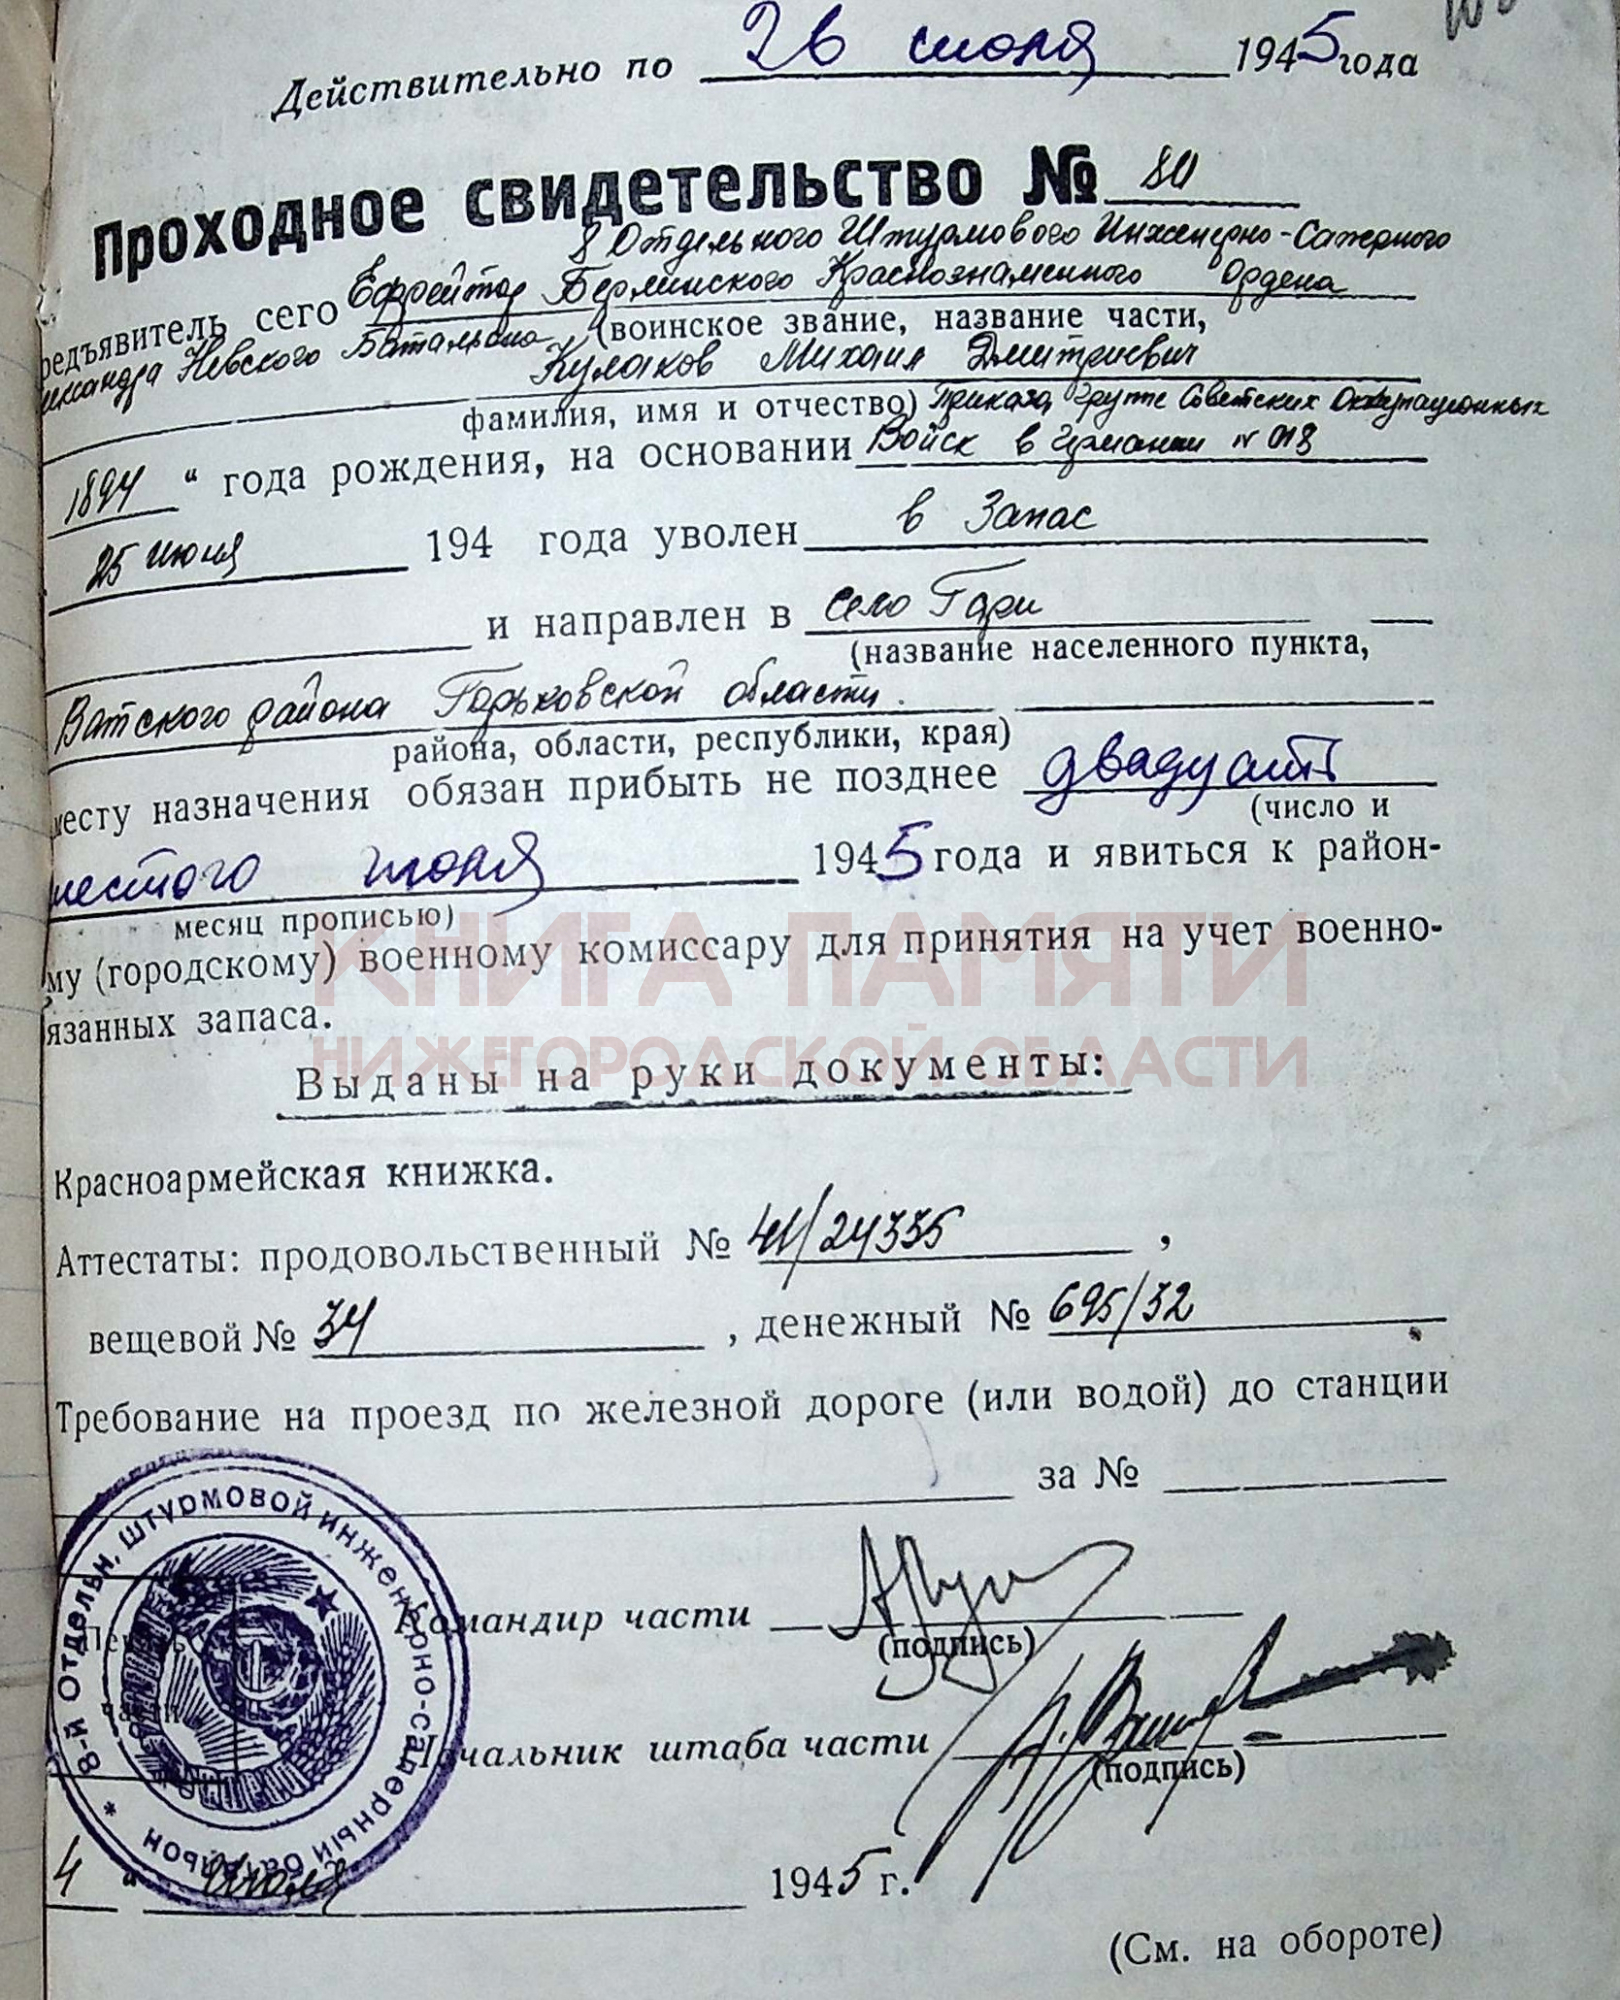 Действительно по 26 июля 1945 года
Проходное свидетельство № 80
8 Отдельного Штурмового Инженерно-Саперного
редъявитель сего Ефрейтор Берлинского Краснознаменного Ордена
лександра Невского Батальона (воинское звание, название части,
Кулаков Михаил Дмитриевич
фамилия, имя и отчество) Приказа Группе Советских Оккупационных
1894 " года рождения, на основании Войск в Германии № 018
25 июня 194 года уволен в Запас
и направлен в село Гари
(название населенного пункта,
Ватского района Горьковской области.
района, области, республики, края)
месту назначения обязан прибыть не позднее двадцать
(число и
шестого июля 1945 года и явиться к район-
месяц прописью)
му (городскому) военному комиссару для принятия на учет военно-
язанных запаса.
КНИГА ПАМЯТИ
НИЖЕГОРОДСКОЙ ОБЛАСТИ
Выданы на руки документы:
Красноармейская книжка.
Аттестаты: продовольственный № 41/24335 ,
вещевой № 34 , денежный № 695/32
Требование на проезд по железной дороге (или водой) до станции
за №
8-й ОТДЕЛЬН. ШТУРМОВОЙ ИНЖЕНЕРНО-САПЕРНЫЙ БАТАЛЬОН *
Печать
части
Командир части
(подпись)
Начальник штаба части
(подпись)
4 " Июля 1945 г.
(См. на обороте)